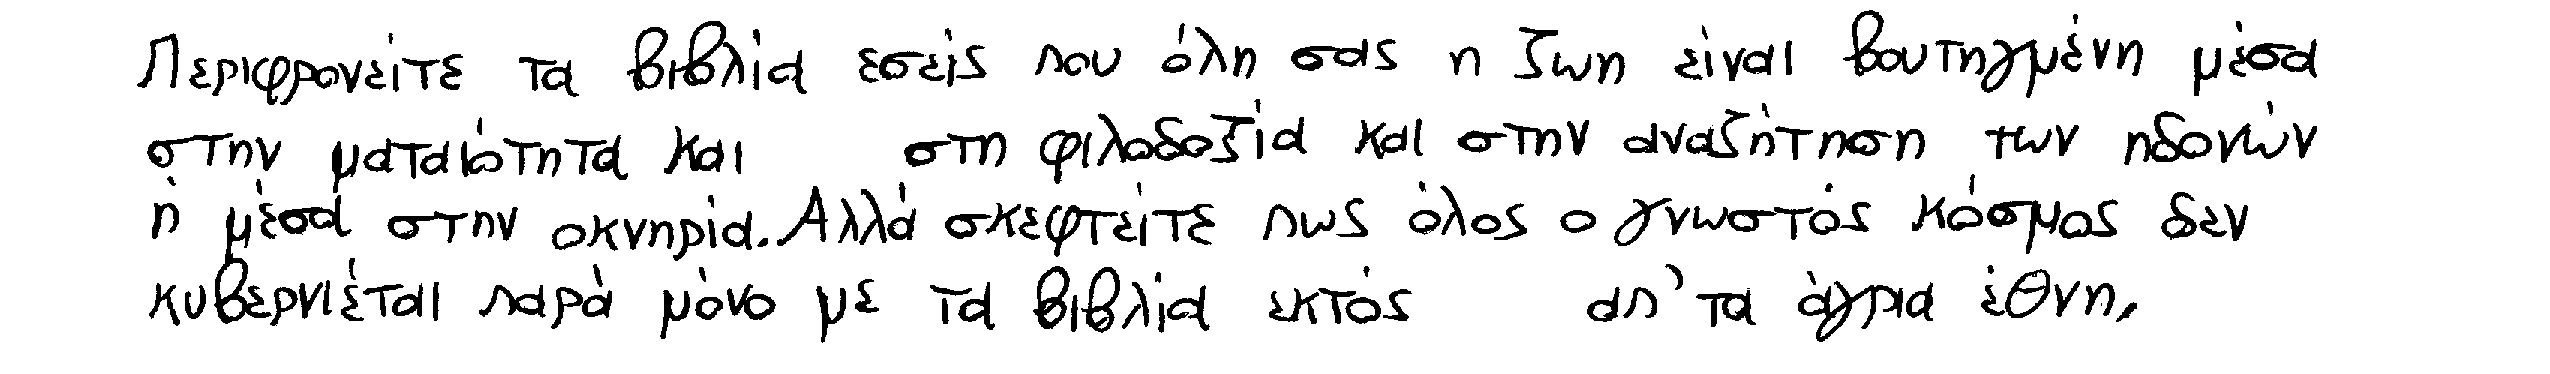 Περιφρονείτε τα βιβλία εσείς που όλη σας η ζωη είναι βουτηγμένη μέσα
στην ματαιότητα και στη φιλοδοξία και στην αναζήτηση των ηδονών
ή μέσα στην οκνηρία. Αλλά σκεφτείτε πως όλος ο γνωστός κόσμος δεν
κυβερνιέται παρά μόνο με τα βιβλία εκτός απ' τα άγρια έθνη,